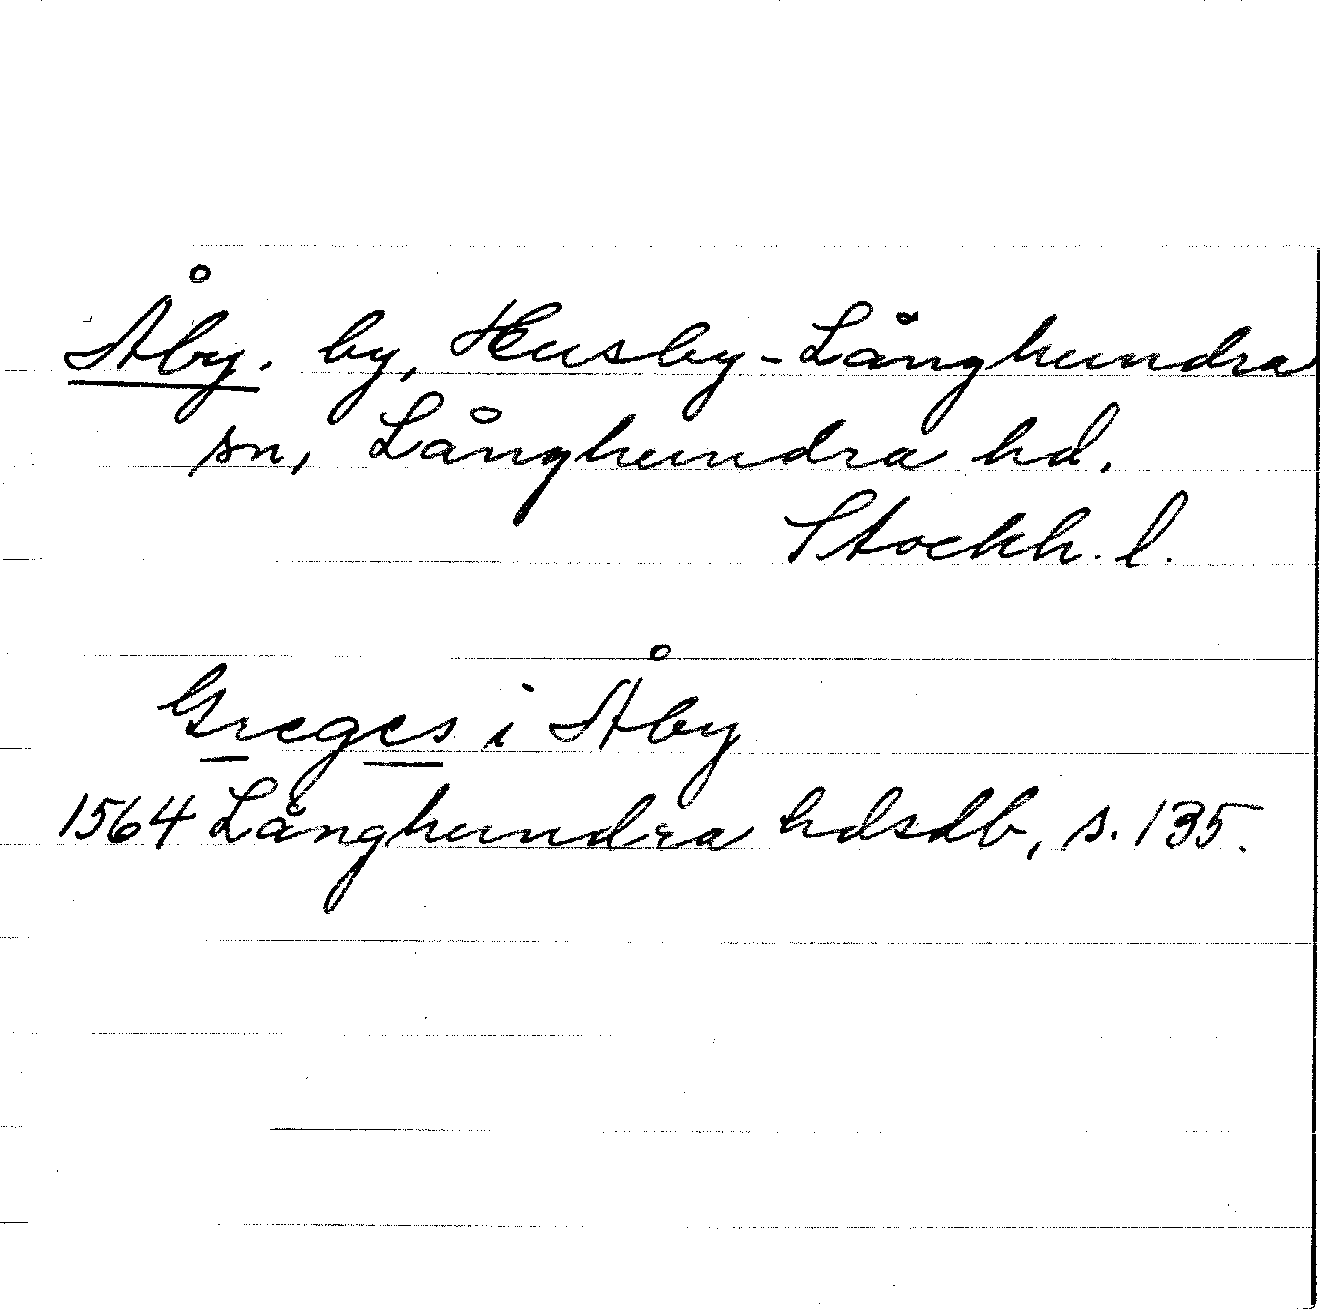 Åby. by, Husby-Långhundra
sn, Långhundra hd.
Stockh. l.
Greges i Åby
1564 Långhundra hdsdb, s. 135.